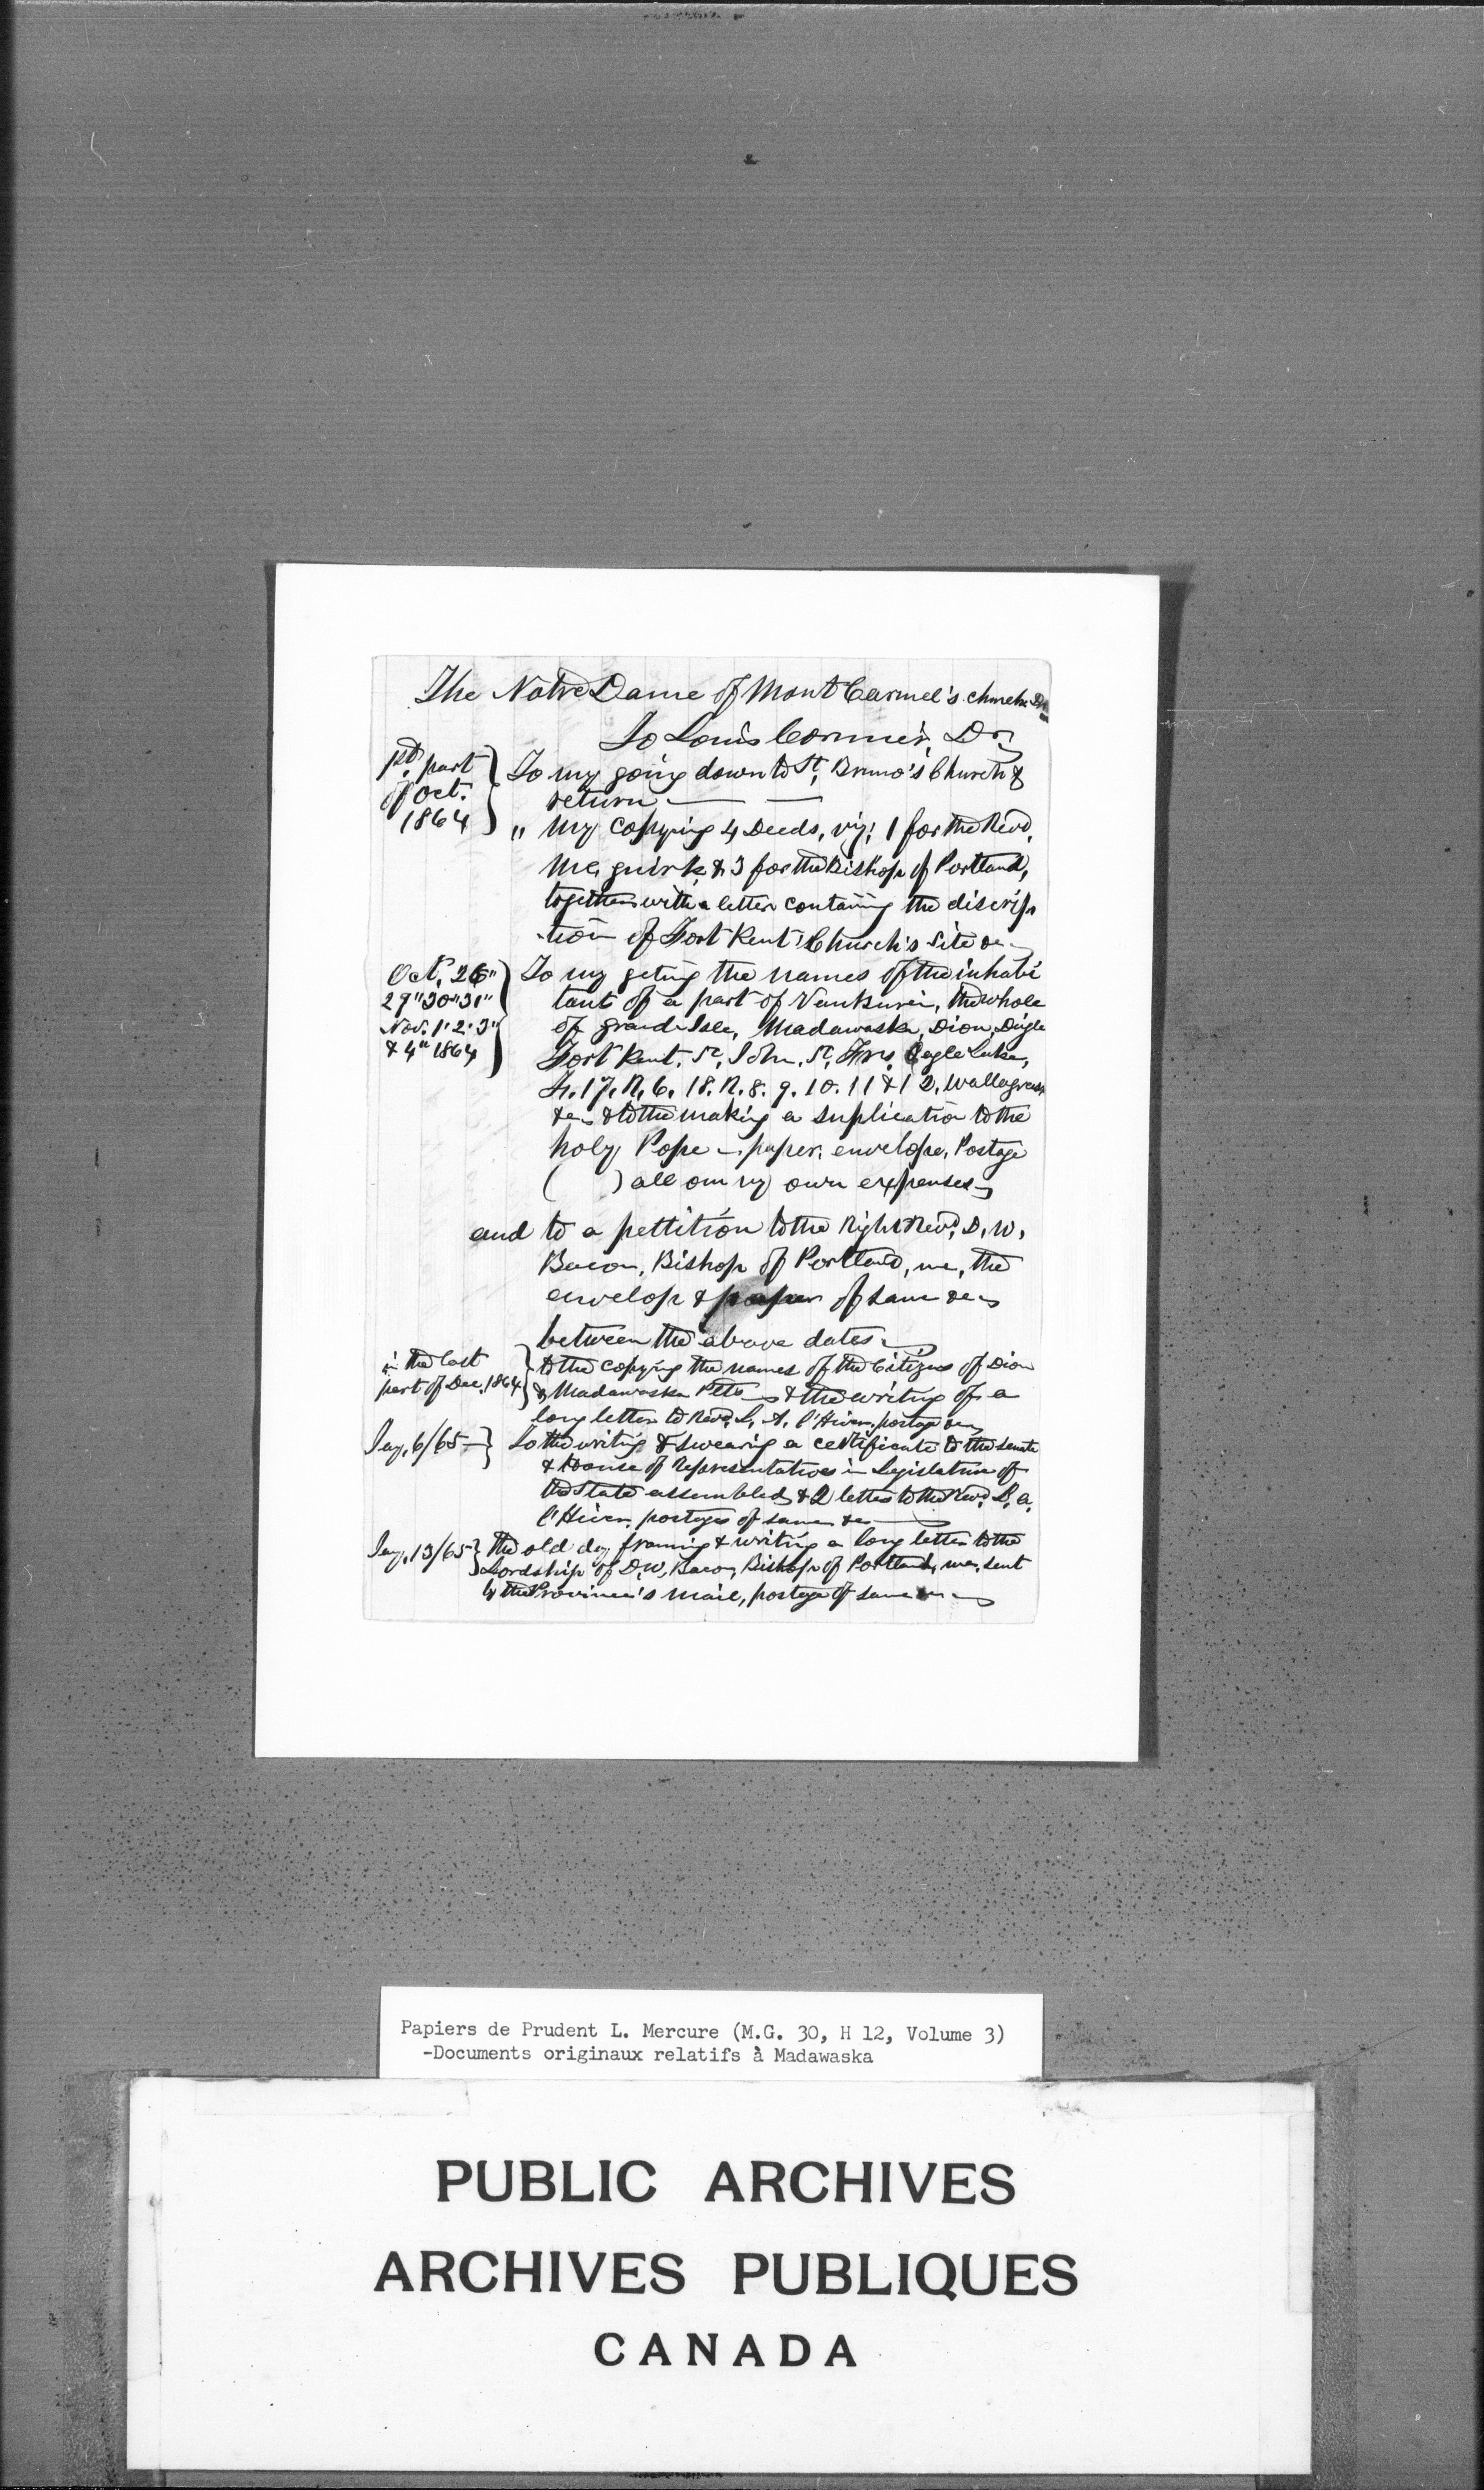 The Notre Dame of Mont Carmel's church Dr
To Louis Cormier, Dr,
1st. part
of Oct.
1864
To my going down to St, Bruno's Church &
return
" my copying 4 Deeds, viz; 1 for the Revd.
Mc, guirk & 3 for the Bishop of Portland,
together with a letter containig the discrip
-tion of Fort Kent Church's Site &c
Oct, 26"
29"30"31"
Nov. 1" 2" 3"
& 4" 1864
To my geting the names of the inhabi
tant of a part of Vanburen, the whole
of grand-Isle, Madawaska, Dion, Daigle
Fort Kent, St, John, St, Frs, Eagle Lake,
17, R, 6, 18, R. 8. 9. 10. 11 & 12, Wallagrass
&c & to the making a suplication to the
holy Pope paper, envelope, Postage
( ) all on my own expenses
and to a pettition to the Right Revd, D, W,
Bacon, Bishop of Portland, me, the
envelop & paper of same &c
between the above dates
in the last
part of Dec, 1864
to the copying the names of the Citizens of Dion
& Madawaska Petts & the writing of a
long letter to Revd, L, A, l'Hiver, postage &c
Jay, 6/65
To the writing & swearing a certificate to the Senate
& House of Representatives in Legislature of
the State assembled & 2 letters to the Revd, L, a,
l'Hiver, postages of same &c
Jay, 13/65
the old day framing & writing a long letter to the
Lordship of D, W, Bacon, Bishop of Portland, me, sent
by the Province's mail, postage of same &c
Papiers de Prudent L. Mercure (M.G. 30, H 12, Volume 3)
-Documents originaux relatifs à Madawaska
PUBLIC ARCHIVES
ARCHIVES PUBLIQUES
CANADA